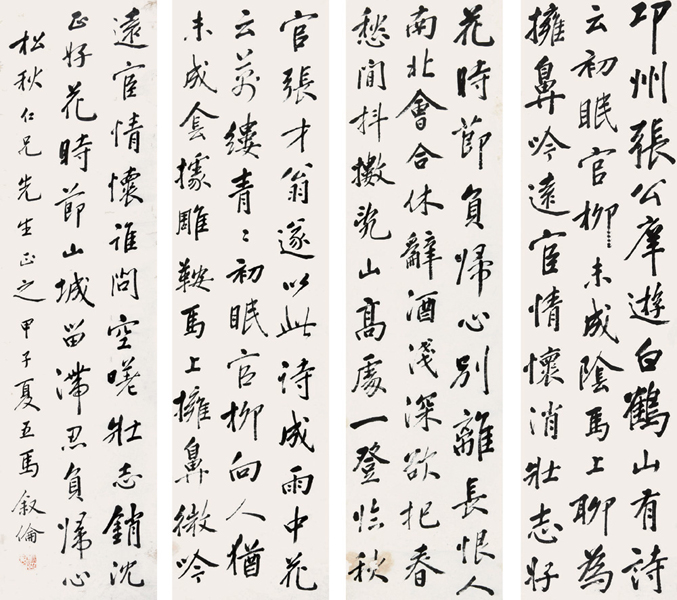 邛州張公庠遊白鶴山有詩
云初眠官柳未成陰馬上聊為
擁鼻吟遠宦情懷消壯志好
花時節負歸心別離長恨人
南北會合休辭酒淺深欲把春
愁閒抖擻亂山高處一登臨秋
官張才翁遂以此詩成雨中花
云萬縷青〻初眠官柳向人猶
未成侌據雕鞍馬上擁鼻微吟
遠宦情懷誰問空嗟壯志銷沈
正好花時節山城留滯忍負歸心
松秋仁兄先生正之 甲子夏五馬叙倫